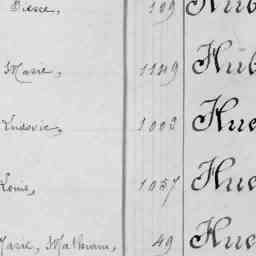 Pierre, 109 Hub
Marie, 1149 Hub
Ludovic, 1002 Hue
Louis, 1057 Hue
Marie, Mathurin, 49 Hue